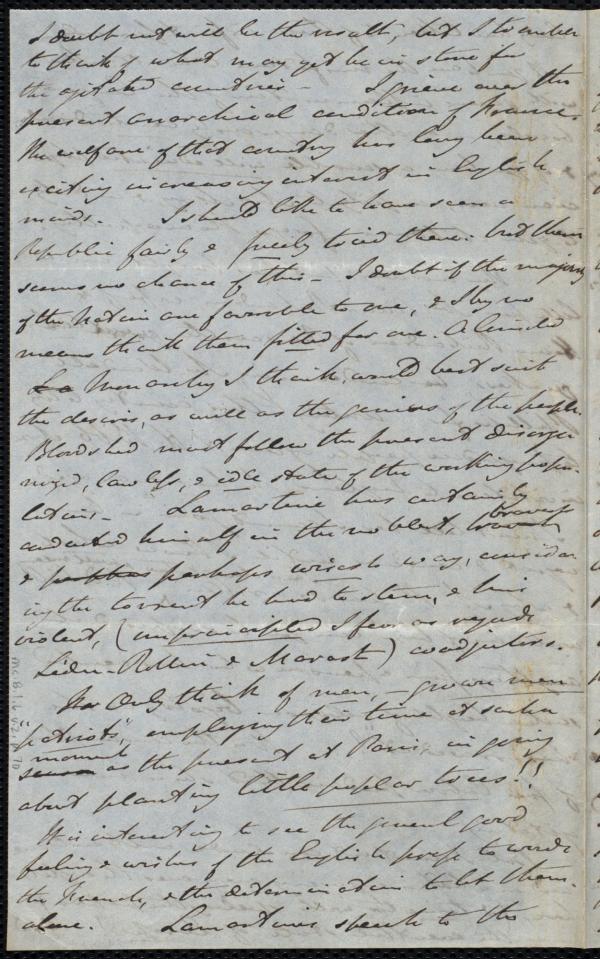 I doubt not will be the result, but I tremble
to think of what may yet be in store for
the agitated countries - I grieve over the
present anarchical condition of France.
The welfare of that country has long been
exciting increasing interest in English
minds. I should like to have seen a
Republic fairly & freely tried there: but there
seems no chance of this - I doubt if the majority
of the Nation are favorable to one, & I by no
means think them fitted for one. A limited
Monarchy I think, would best suit
the desires, as well as the genius of the people.
Bloodshed must follow the present disorga
nized, lawless, & idle state of the working popu-
lation - Lamartine has certainly
conducted himself in the noblest, bravest
& perhaps wisest way, consider
ing the torrent he had to stem, & his
violent, (unprincipled I fear as regards
Ledru-Rollin & Marast) coadjutors.
Only think of men, - grown men
"patriots", employing their time at such a
moment as the present at Paris, in going
about planting little poplar trees!!
It is interesting to see the general good
feeling & wishes of the English press towards
the French, & the determination to let them
alone. Lamartine's speech to the